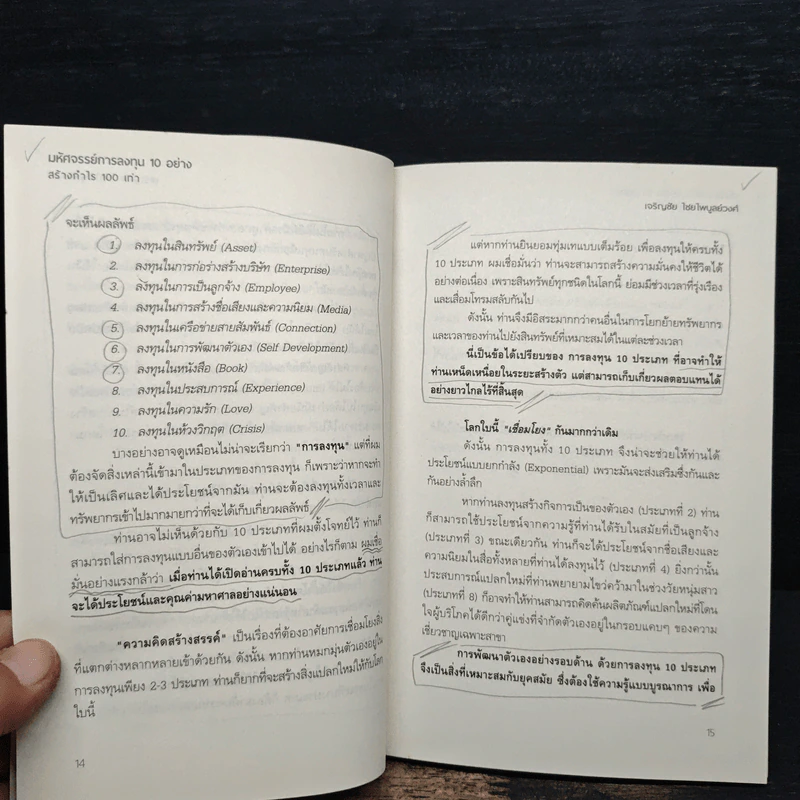 มหัศจรรย์การลงทุน 10 อย่าง
สร้างกำไร 100 เท่า
จะเห็นผลลัพธ์
1. ลงทุนในสินทรัพย์ (Asset)
2. ลงทุนในการก่อร่างสร้างบริษัท (Enterprise)
3. ลงทุนในการเป็นลูกจ้าง (Employee)
4. ลงทุนในการสร้างชื่อเสียงและความนิยม (Media)
5. ลงทุนในเครือข่ายสายสัมพันธ์ (Connection)
6. ลงทุนในการพัฒนาตัวเอง (Self Development)
7. ลงทุนในหนังสือ (Book)
8. ลงทุนในประสบการณ์ (Experience)
9. ลงทุนในความรัก (Love)
10. ลงทุนในห้วงวิกฤต (Crisis)
บางอย่างอาจดูเหมือนไม่น่าจะเรียกว่า "การลงทุน" แต่ที่ผม
ต้องจัดสิ่งเหล่านี้เข้ามาในประเภทของการลงทุน ก็เพราะว่าหากจะทำ
ให้เป็นเลิศและได้ประโยชน์จากมัน ท่านจะต้องลงทุนทั้งเวลาและ
ทรัพยากรเข้าไปมากมายกว่าที่จะได้เก็บเกี่ยวผลลัพธ์
ท่านอาจไม่เห็นด้วยกับ 10 ประเภทที่ผมตั้งโจทย์ไว้ ท่านก็
สามารถใส่การลงทุนแบบอื่นของตัวเองเข้าไปได้ อย่างไรก็ตาม ผมเชื่อ
มั่นอย่างแรงกล้าว่า เมื่อท่านได้เปิดอ่านครบทั้ง 10 ประเภทแล้ว ท่าน
จะได้ประโยชน์และคุณค่ามหาศาลอย่างแน่นอน
"ความคิดสร้างสรรค์" เป็นเรื่องที่ต้องอาศัยการเชื่อมโยงสิ่ง
ที่แตกต่างหลากหลายเข้าด้วยกัน ดังนั้น หากท่านหมกมุ่นตัวเองอยู่ใน
การลงทุนเพียง 2-3 ประเภท ท่านก็ยากที่จะสร้างสิ่งแปลกใหม่ให้กับโลก
ใบนี้
14
เจริญชัย ไชยไพบูลย์วงศ์
แต่หากท่านยินยอมทุ่มเทแบบเต็มร้อย เพื่อลงทุนให้ครบทั้ง
10 ประเภท ผมเชื่อมั่นว่า ท่านจะสามารถสร้างความมั่นคงให้ชีวิตได้
อย่างต่อเนื่อง เพราะสินทรัพย์ทุกชนิดในโลกนี้ ย่อมมีช่วงเวลาที่รุ่งเรือง
และเสื่อมโทรมสลับกันไป
ดังนั้น ท่านจึงมีอิสระมากกว่าคนอื่นในการโยกย้ายทรัพยากร
และเวลาของท่านไปยังสินทรัพย์ที่เหมาะสมได้ในแต่ละช่วงเวลา
นี่เป็นข้อได้เปรียบของ การลงทุน 10 ประเภท ที่อาจทำให้
ท่านเหน็ดเหนื่อยในระยะสร้างตัว แต่สามารถเก็บเกี่ยวผลตอบแทนได้
อย่างยาวไกลไร้ที่สิ้นสุด
โลกใบนี้ "เชื่อมโยง" กันมากกว่าเดิม
ดังนั้น การลงทุนทั้ง 10 ประเภท จึงน่าจะช่วยให้ท่านได้
ประโยชน์แบบยกกำลัง (Exponential) เพราะมันจะส่งเสริมซึ่งกันและ
กันอย่างล้ำลึก
หากท่านลงทุนสร้างกิจการเป็นของตัวเอง (ประเภทที่ 2) ท่าน
ก็สามารถใช้ประโยชน์จากความรู้ที่ท่านได้รับในสมัยที่เป็นลูกจ้าง
(ประเภทที่ 3) ขณะเดียวกัน ท่านก็จะได้ประโยชน์จากชื่อเสียงและ
ความนิยมในสื่อทั้งหลายที่ท่านได้ลงทุนไว้ (ประเภทที่ 4) ยิ่งกว่านั้น
ประสบการณ์แปลกใหม่ที่ท่านพยายามไขว่คว้ามาในช่วงวัยหนุ่มสาว
(ประเภทที่ 8) ก็อาจทำให้ท่านสามารถคิดค้นผลิตภัณฑ์แปลกใหม่ที่โดน
ใจผู้บริโภคได้ดีกว่าคู่แข่งที่จำกัดตัวเองอยู่ในกรอบแคบๆ ของความ
เชี่ยวชาญเฉพาะสาขา
การพัฒนาตัวเองอย่างรอบด้าน ด้วยการลงทุน 10 ประเภท
จึงเป็นสิ่งที่เหมาะสมกับยุคสมัย ซึ่งต้องใช้ความรู้แบบบูรณาการ เพื่อ
15